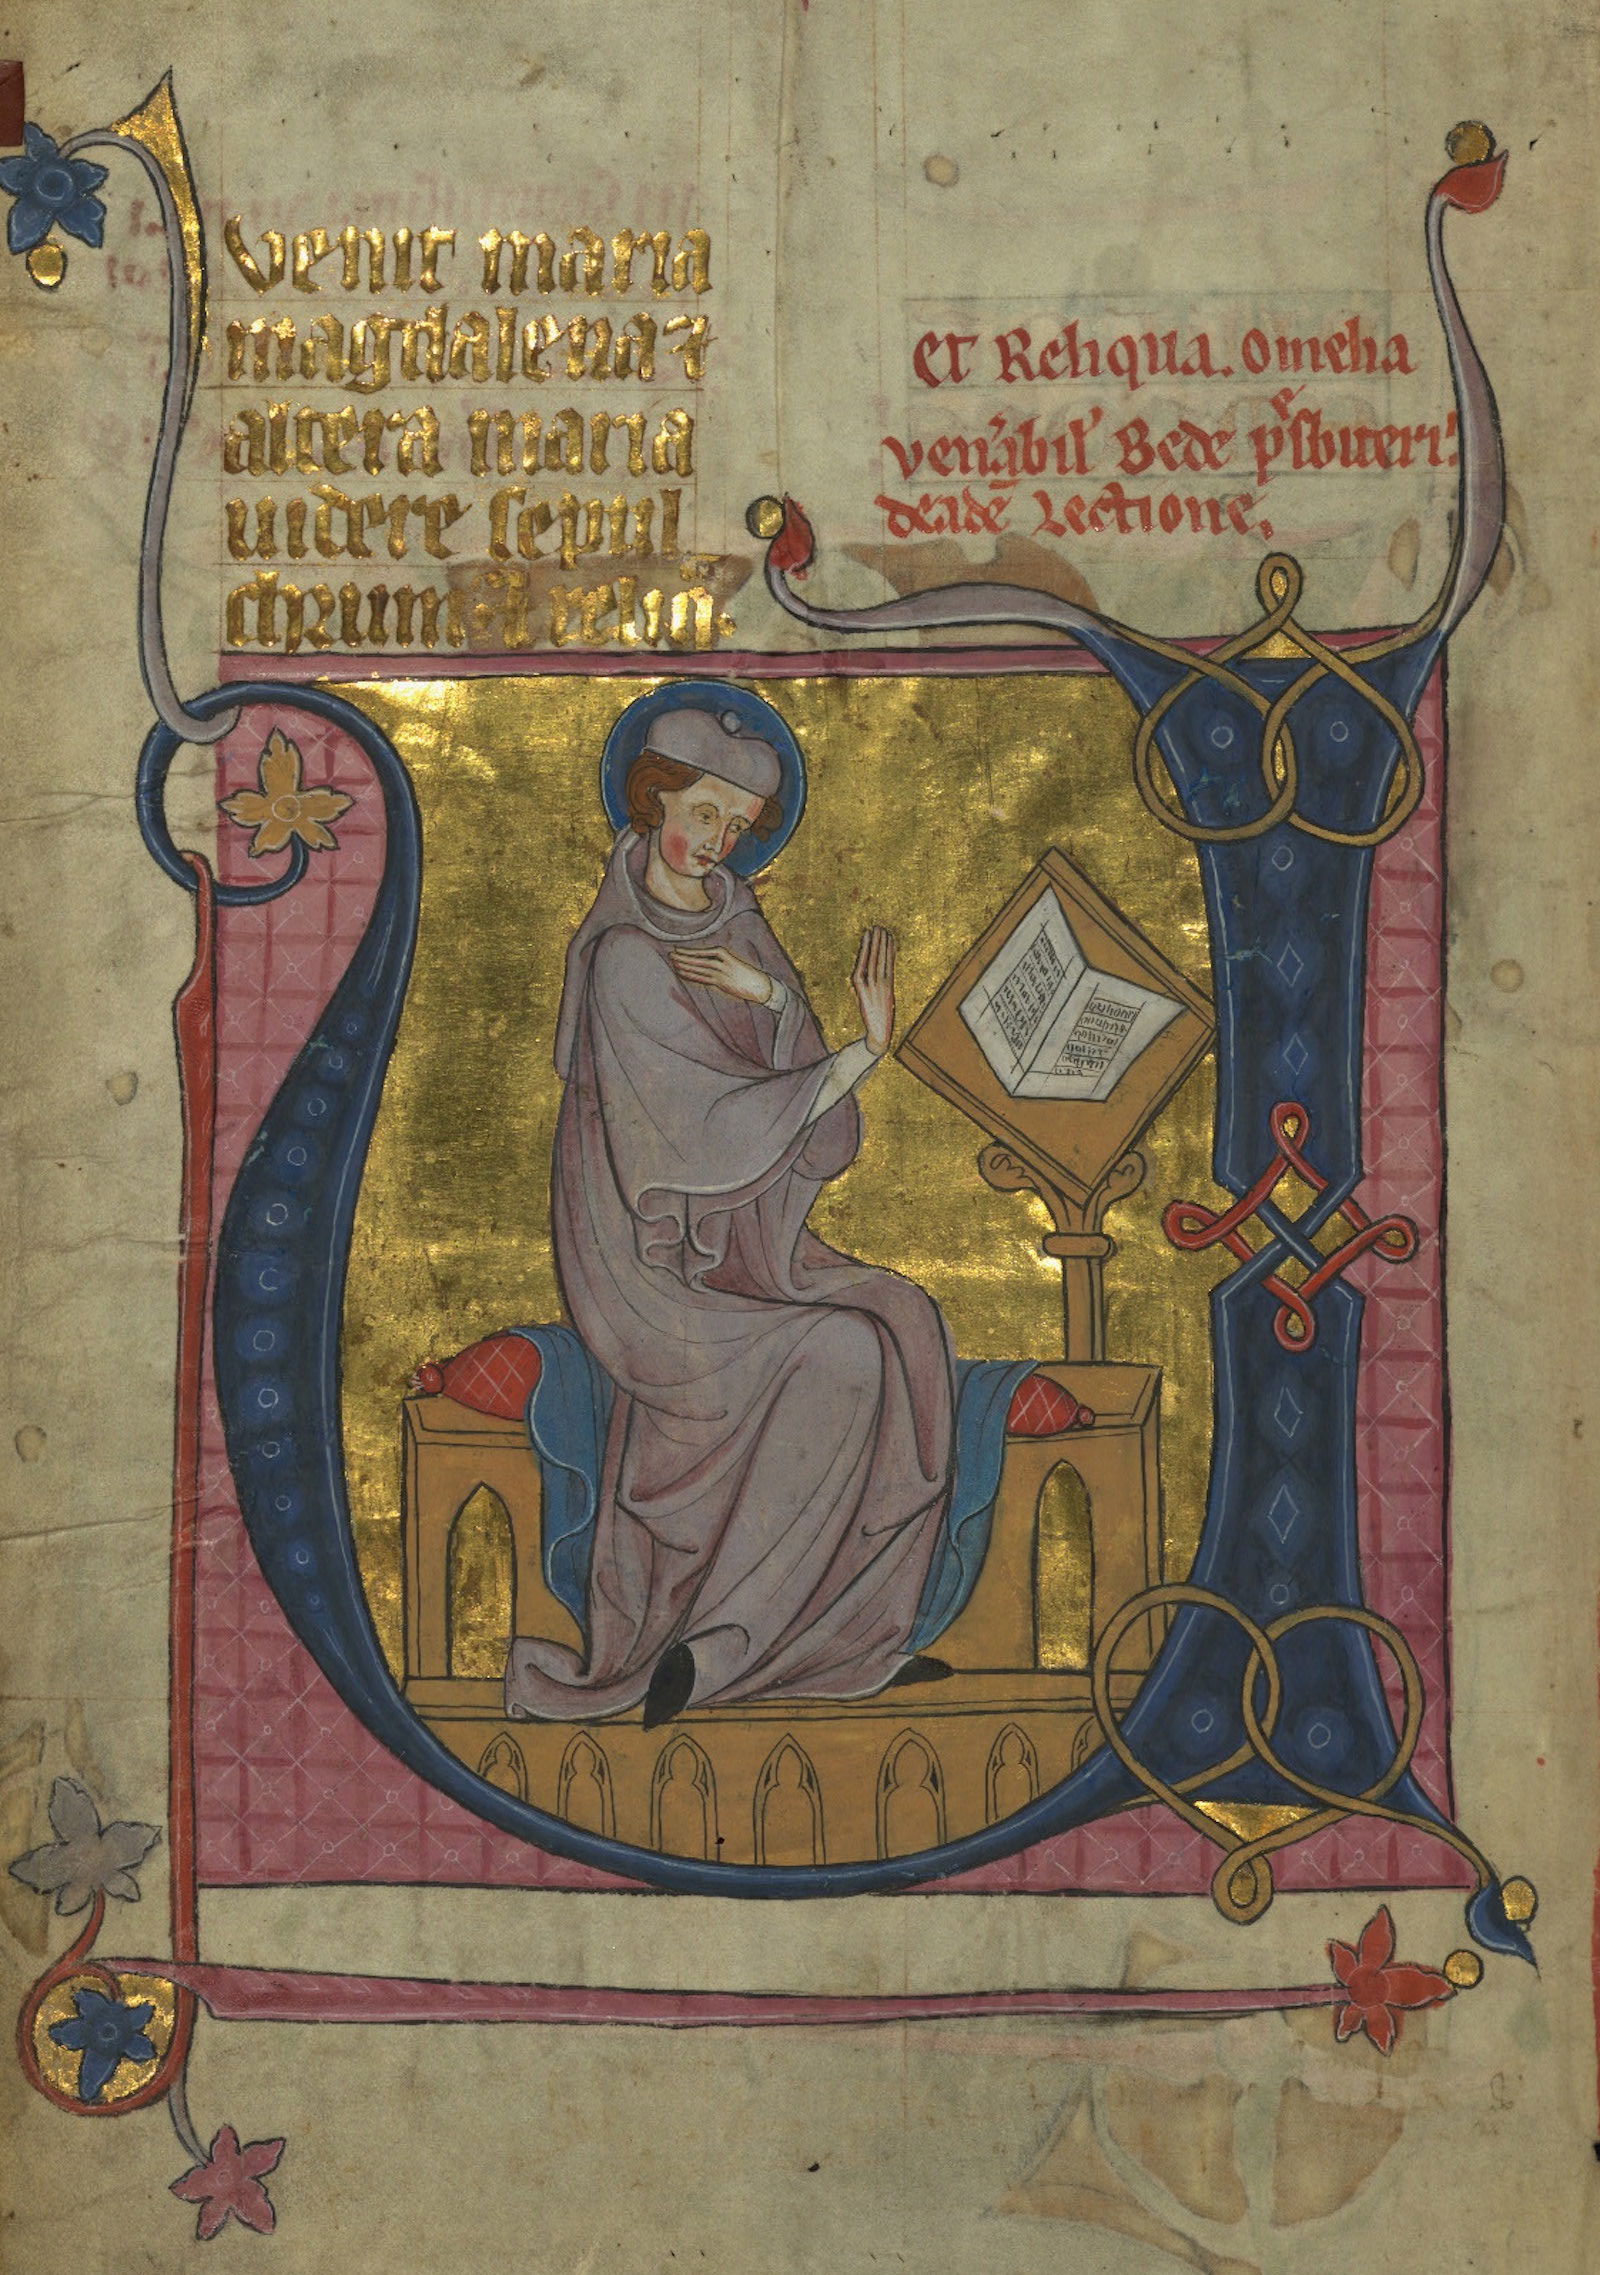 venit maria
magdalena ⁊
altera maria
uidere sepul
chrum. ⁊ reliq̄.
Et Reliqua. Omelia
veńabil̓ Bede p̓sbiteri.
de ead̄e Lectione.